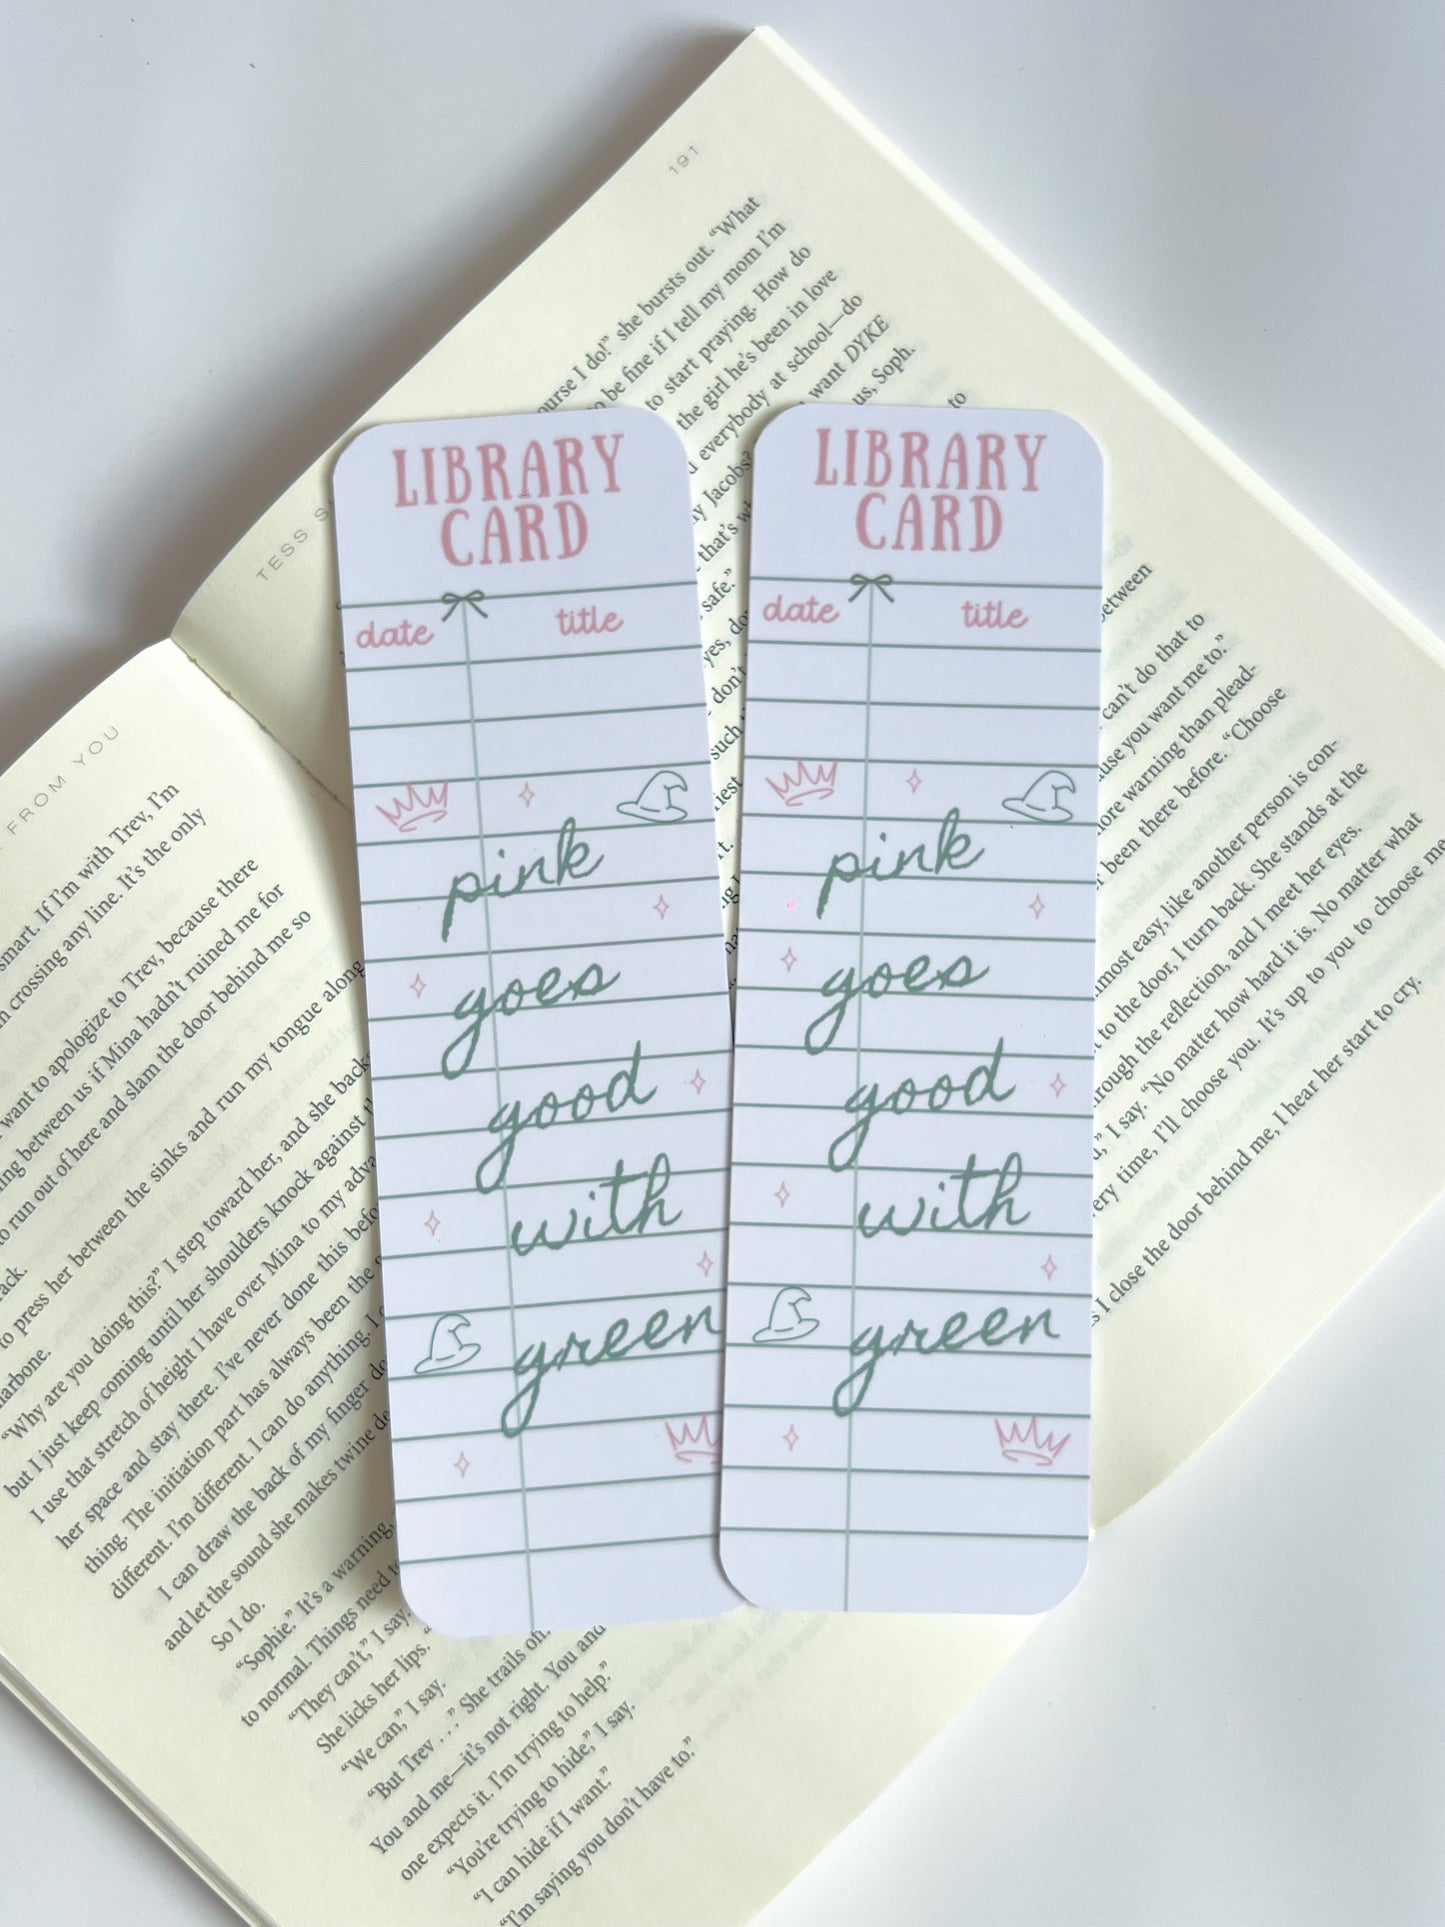 LIBRARY
CARD
date title
pink
goes
good
with
green
LIBRARY
CARD
date title
pink
goes
good
with
green
FROM YOU
smart. If I'm with Trev, I'm
crossing any line. It's the only
want to apologize to Trev, because there
between us if Mina hadn't ruined me for
to run out of here and slam the door behind me so
to press her between the sinks and run my tongue along
"Why are you doing this?" I step toward her, and she back
but I just keep coming until her shoulders knock against
I use that stretch of height I have over Mina to my adva
her space and stay there. I've never done this befo
thing. The initiation part has always been the
different. I'm different. I can do anything. I
I can draw the back of my finger do
and let the sound she makes twine do
So I do.
"Sophie." It's a warning,
to normal. Things need to
"They can't," I say.
She licks her lips.
"We can," I say.
"But Trev . . ." She trails off.
You and me—it's not right. You and
one expects it. I'm trying to help."
"You're trying to hide," I say.
"I can hide if I want."
"I'm saying you don't have to."
TESS
191
ourse I do!" she bursts out. "What
be fine if I tell my mom I'm
to start praying. How do
the girl he's been in love
everybody at school—do
want DYKE
us, Soph.
to
Jacobs?
that's
safe."
yes,
don't
such
between
can't do that to
use you want me to."
more warning than plead-
been there before. "Choose
most easy, like another person is con-
to the door, I turn back. She stands at the
through the reflection, and I meet her eyes.
I say. "No matter how hard it is. No matter what
ery time, I'll choose you. It's up to you to choose me
I close the door behind me, I hear her start to cry.